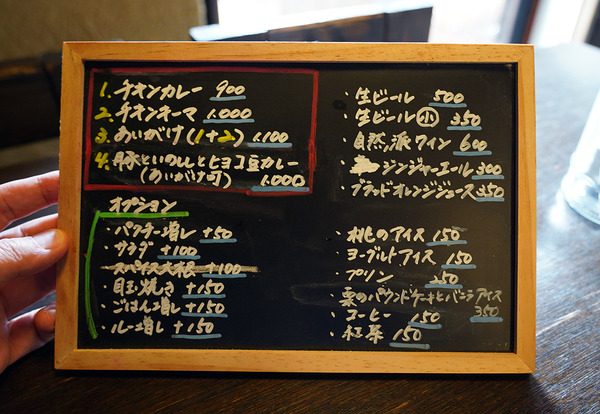 1. チオンカレー 900
2. チオンキーマ 1.000
3. あいがけ(1+2) 1.100
4. 豚といのししとヒヨコ豆カレー
(あいがけ可) 1.000
オプション
・パクチー増し +50
・サラダ +100
・スパイス大根 +100
・目玉焼き +150
・ごはん増し +150
・ルー増し +150
・生ビール 500
・生ビール 小 350
・自然派ワイン 600
・ジンジャーエール 300
・ブラッドオレンジジュース 350
・桃のアイス 150
・ヨーグルトアイス 150
・プリン 250
・栗のパウンドケーキとバニラアイス
350
・コーヒー 150
・紅茶 150